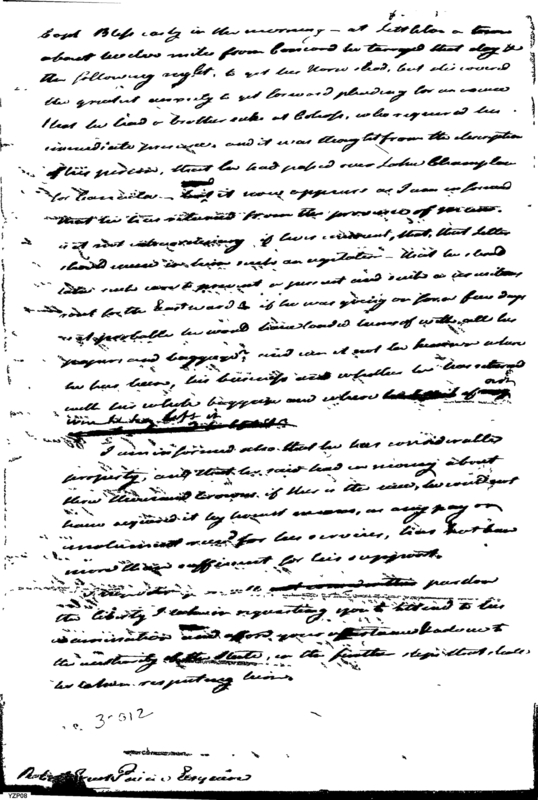 Capt Bliss early in the morning – at Littleton a town
about twelve miles from Concord he tarryed that day &
the following night, to get his horse shod, but discovered
the greatest anxiety to get forward pleading for an excuse
that he had a brother sick at Cohoss, who required his
immediate presence, and it was thought from the description
of his person, that he had passed over Lake Champlain
for Canada – but it now appears as I am informed
that he has returned from the province of
is it not extraordinary, if he was innocent, that, that letter
should cause in him such an agitation – that he should
take such care to prevent a pursuit and such a circuitous
rout for the Eastward & if he was going on for a few days
is it probable he would have loaded himself with all his
papers and baggage, and can it not be known where
he has been, his business and whether he has returned
with his whole baggage and where
left it
I am informed also that he has considerable
property, and that he said had in money about
three thousand crowns. if this is the case, he could not
have acquired it by honest means, as any pay or
emolument recd for his services, has not been
more than sufficient for his support.
pardon
the liberty I take in requesting you to attend to his
examination and afford your assistance & advice to
the authority of the State, in the further steps that shall
be taken respecting him
3-312
Robert Treat Paine Esquire
YZP08